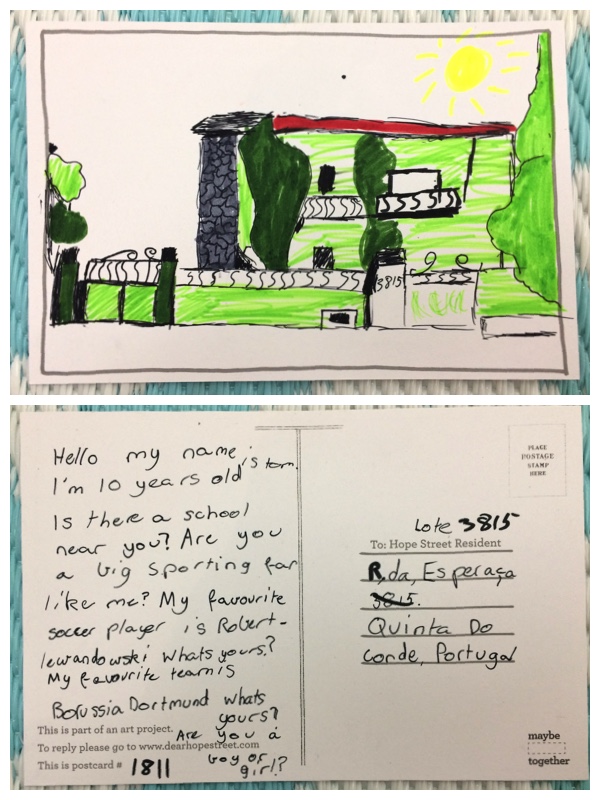 3815
Hello my name is tom.
I'm 10 years old
Is there a school
near you? Are you
a big Sporting fan
like me? My favourite
soccer player is Robert-
lewandowski Whats yours?
My favourite team is
Borussia Dortmund whats
yours?
Are you a
boy or
girl?
This is part of an art project.
To reply please go to www.dearhopestreet.com
This is postcard # 1811
PLACE
POSTAGE
STAMP
HERE
Lote 3815
To: Hope Street Resident
R. da, Esperaça
3815.
Quinta Do
Conde, Portugal
maybe
together